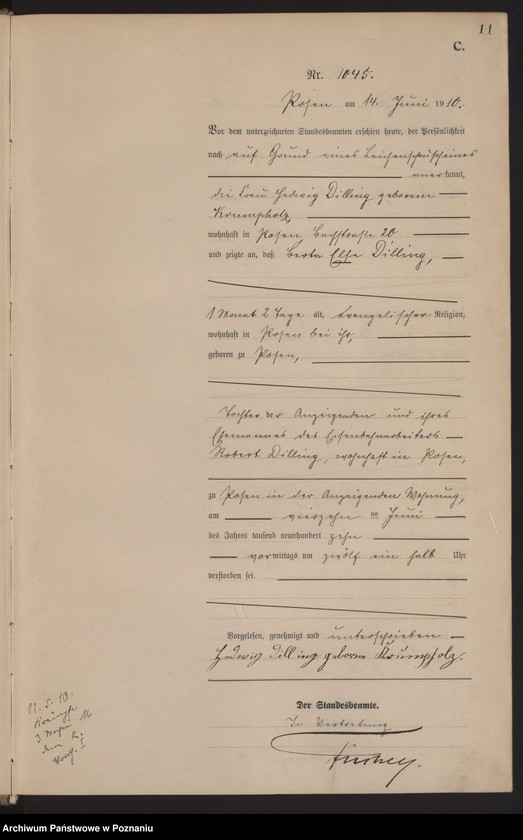 11
C.
Nr. 1045.
Posen am 14. Juni 1910.
Vor dem unterzeichneten Standesbeamten erschien heute, der Persönlichkeit
nach auf Grund eines Leichenschauscheines
anerkannt,
die Frau Hedwig Dilling geborene
Krumpholz,
wohnhaft in Posen Bachstraße 20
und zeigte an, daß Berta Else Dilling,
1 Monat 2 Tage alt, evangelischer Religion,
wohnhaft in Posen bei ihr,
geboren zu Posen,
Tochter der Anzeigenden und ihres
Ehemannes des Eisenbahnarbeiters
Robert Dilling, wohnhaft in Posen,
zu Posen in der Anzeigenden Wohnung,
am vierzehn ten Juni
des Jahres tausend neunhundert zehn
vormittags um zwölf ein halb Uhr
verstorben sei.
Vorgelesen, genehmigt und unterschrieben
Hedwig Dilling geborne Krumpholz.
Der Standesbeamte.
In Vertretung
12. 5. 10.
3
Archiwum Państwowe w Poznaniu